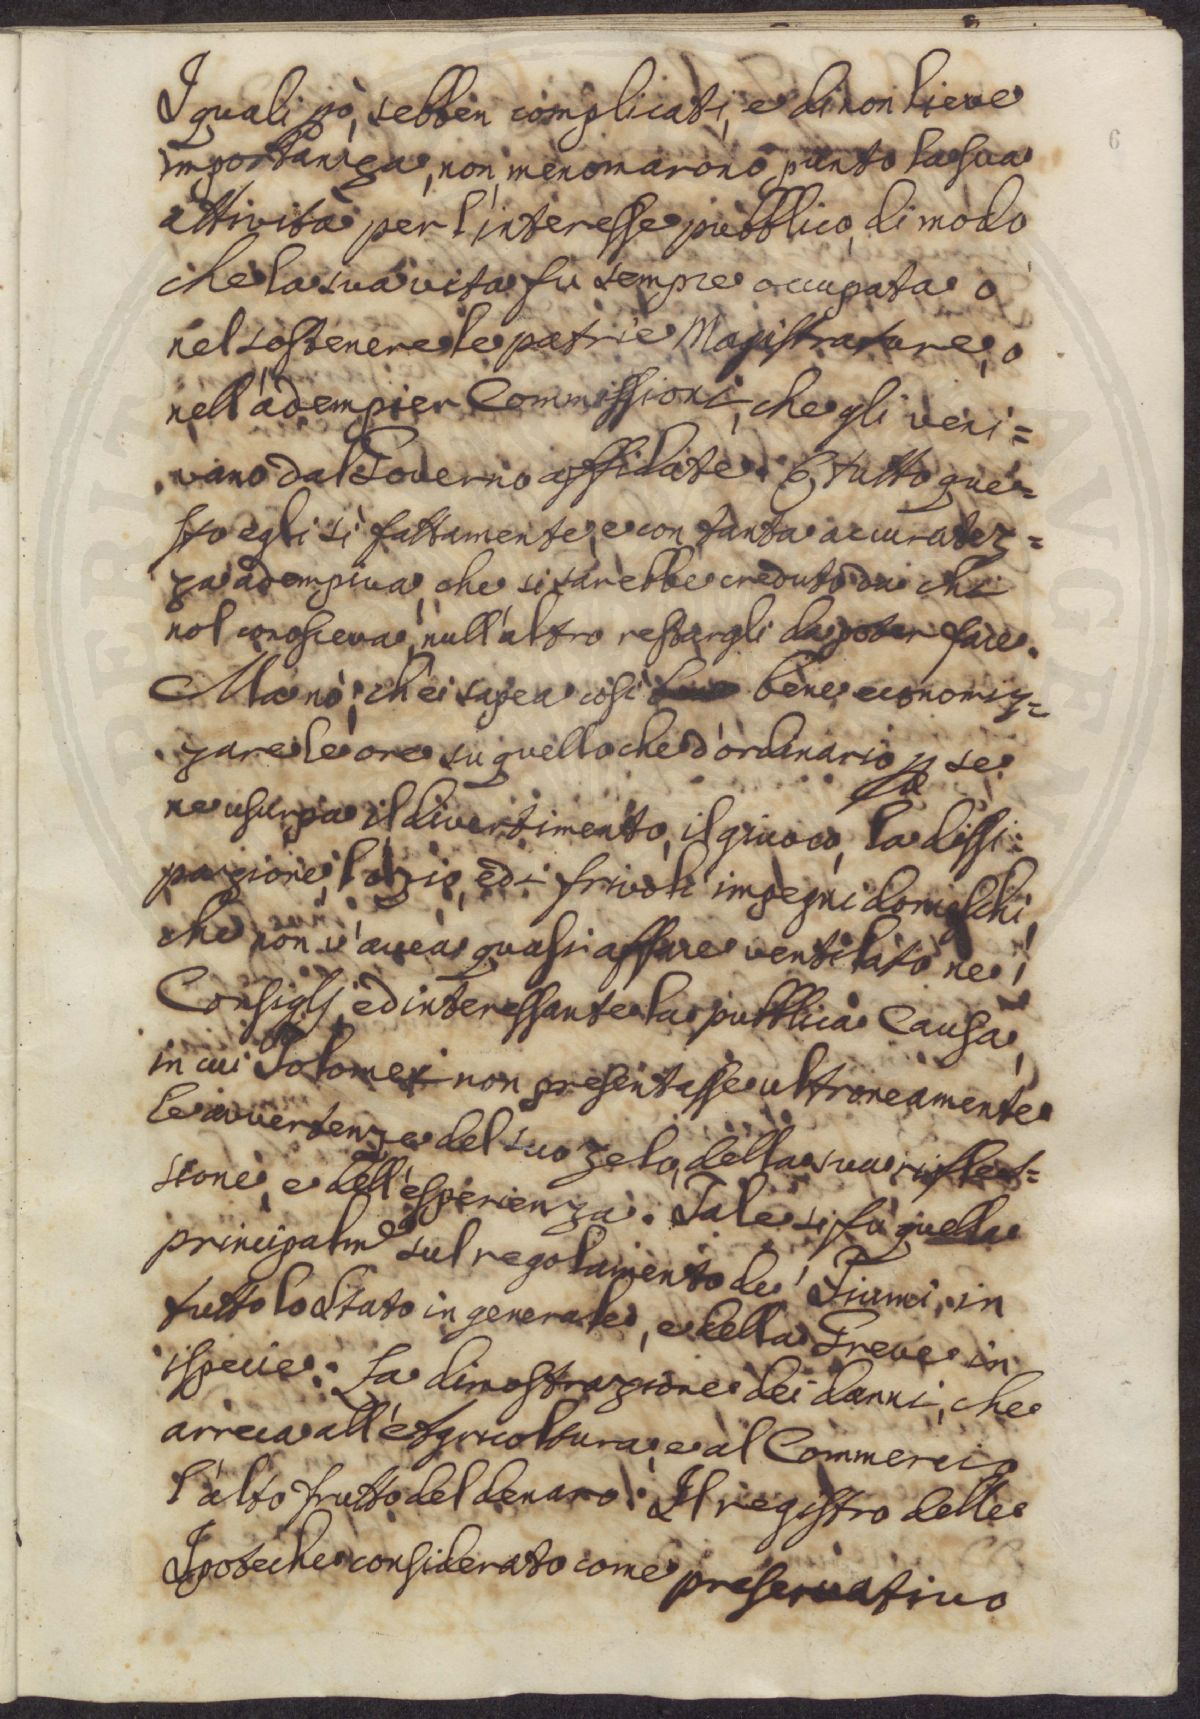 6
I quali pò, sebben complicati, e di non lieve
importanza, non menomarono punto la sua
attività per l'interesse pubblico, di modo
che la sua vita fu sempre occupata o
nel sostenere le patrie Magistrature, o
nell'adempier Commissioni, che gli veni=
vano dal Governo affidate. E tutto que=
sto egli sì fattamente, e con tanta accuratez=
za adempiva, che si sarebbe creduto da chi
nol conosceva, null'altro restargli da poter fare.
Ma nò: ch'ei sapea così bene economiz=
zare le ore su quello che d'ordinario se
ne usurpa il divertimento, il giuoco, la dissi=
pazione, l'ozio, ed i frivoli impegni domestici,
che non v'avea quasi affare ventilato ne'
Consiglj, ed interessante la pubblica Causa,
in cui Tolomei non presentasse ultroneamente
le avvertenze del suo zelo, della sua rifles=
sione, e dell'esperienza. Tale si fù quella
principalme sul regolamento de' Fiumi, in
tutto lo Stato in generale, e della Greve in
ispecie: La dimostrazione dei danni, che
arreca all'Agricoltura, e al Commercio
l'alto frutto del denaro: Il registro delle
Ipoteche considerato come preservativo
PERITA AVGEN